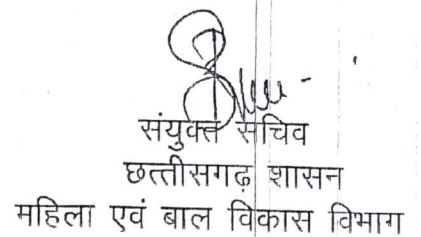 संयुक्त सचिव
छत्तीसगढ़ शासन
महिला एवं बाल विकास विभाग